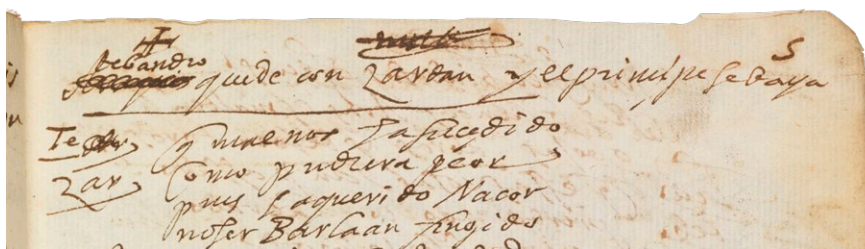 5
tebandro quede con Zardan y el principe se baya
Te q mal nos ha sucedido
Zar Como pudiera peor
pues ha querido Nacor
no ser Barlaan fingido